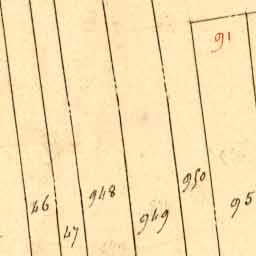 91
46
47
948
949
950
95